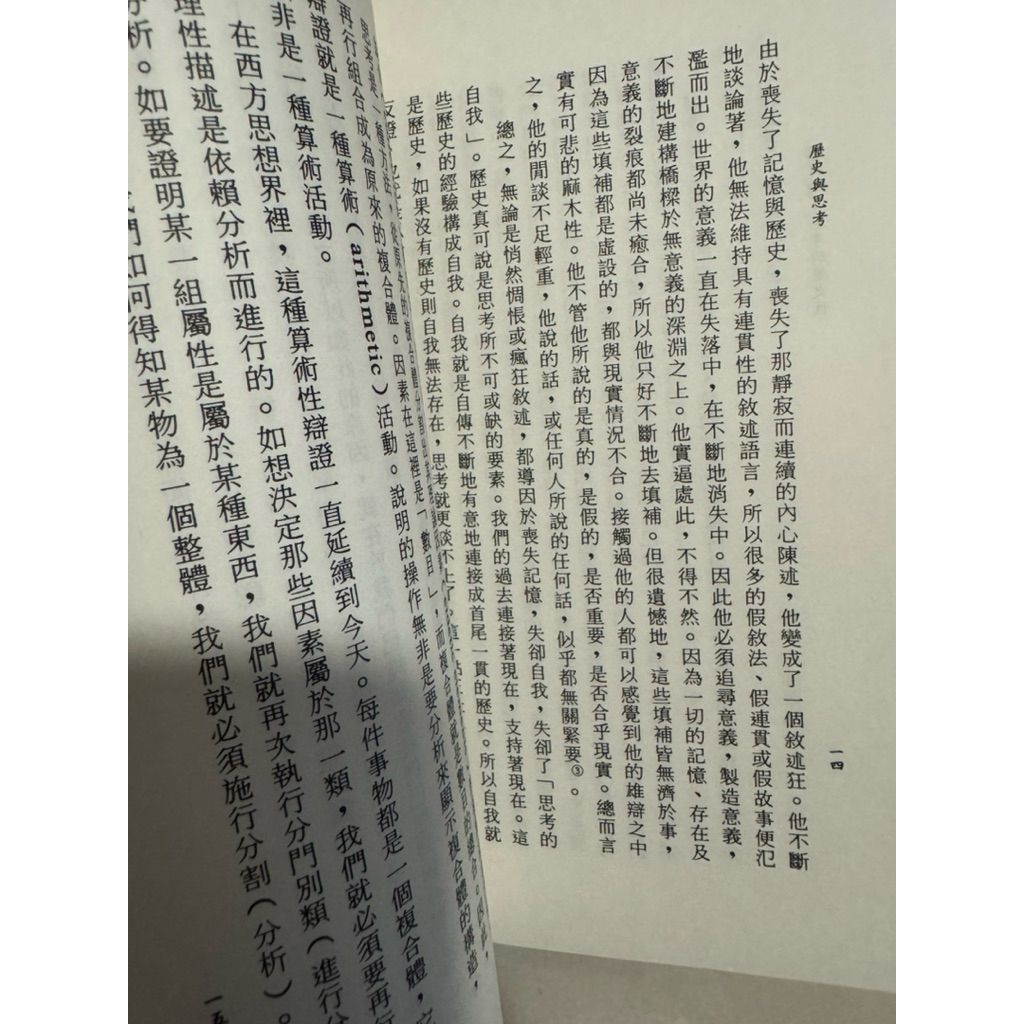 歷史與思考
一四
由於喪失了記憶與歷史，喪失了那靜寂而連續的內心陳述，他變成了一個敘述狂。他不斷
地談論著，他無法維持具有連貫性的敘述語言，所以很多的假敘法、假連貫或假故事便氾
濫而出。世界的意義一直在失落中，在不斷地消失中。因此他必須追尋意義，製造意義，
不斷地建構橋樑於無意義的深淵之上。他實逼處此，不得不然。因為一切的記憶、存在及
意義的裂痕都尚未癒合，所以他只好不斷地去填補。但很遺憾地，這些填補皆無濟於事，
因為這些填補都是虛設的，都與現實情況不合。接觸過他的人都可以感覺到他的雄辯之中
實有可悲的麻木性。他不管他所說的是真的，是假的，是否重要，是否合乎現實。總而言
之，他的閒談不足輕重，他說的話，或任何人所說的任何話，似乎都無關緊要③。
總之，無論是悄然惆悵或瘋狂敘述，都導因於喪失記憶，失卻自我，失卻了「思考的
自我」。歷史真可說是思考所不可或缺的要素。我們的過去連接著現在，支持著現在。這
些歷史的經驗構成自我。自我就是自傳不斷地有意地連接成首尾一貫的歷史。所以自我就
是歷史，如果沒有歷史則自我無法存在，思考就更談不上了。
思考是一種方法，從原先的複合體
再行組合成為原來的複合體。因素在這裡是「數目」，而複合體就是數目的總合。因此，
辯證就是一種算術（arithmetic）活動。說明的操作無非是要分析來顯示複合體的構造，
非是一種算術活動。
在西方思想界裡，這種算術性辯證一直延續到今天。每件事物都是一個複合體，
理性描述是依賴分析而進行的。如想決定那些因素屬於那一類，我們就必須要再行
析。如要證明某一組屬性是屬於某種東西，我們就再次執行分門別類（進行分
們如何得知某物為一個整體，我們就必須施行分割（分析）。
一五